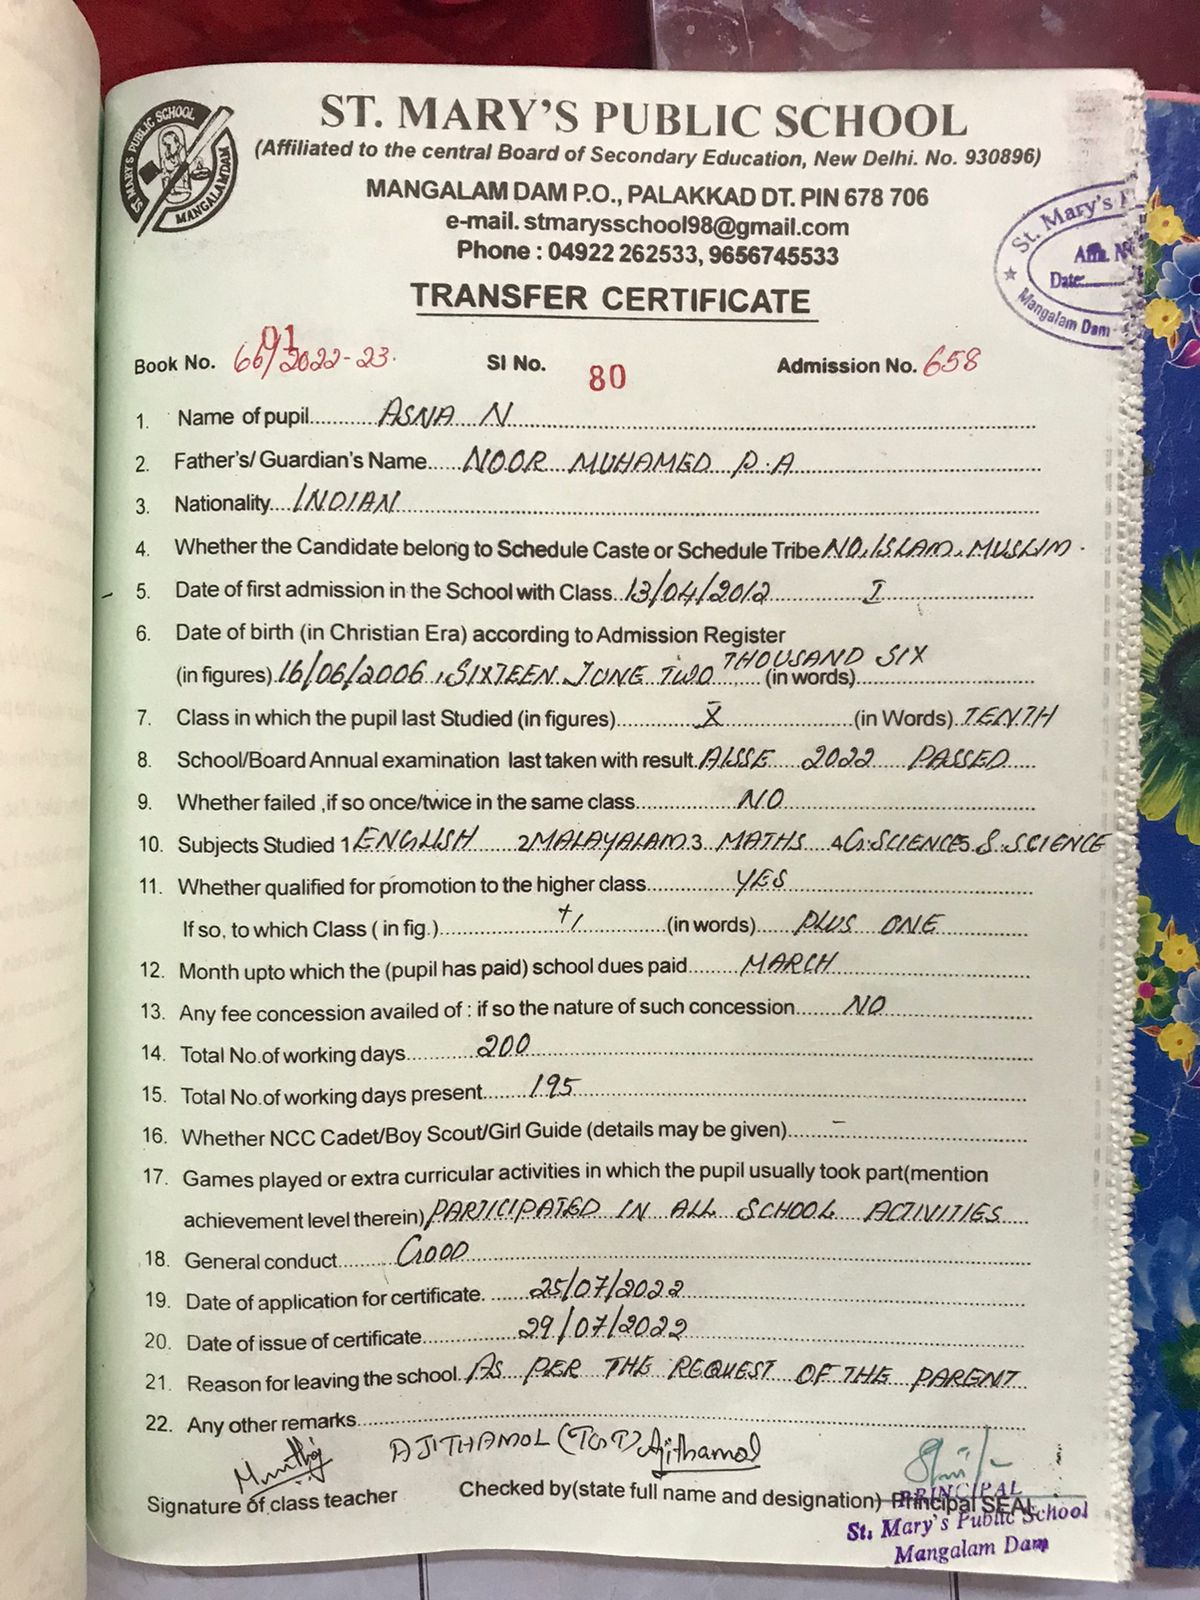 ST MARY'S PUBLIC SCHOOL
MANGALAMDAM
ST. MARY'S PUBLIC SCHOOL
(Affiliated to the central Board of Secondary Education, New Delhi. No. 930896)
MANGALAM DAM P.O., PALAKKAD DT. PIN 678 706
e-mail. stmarysschool98@gmail.com
Phone : 04922 262533, 9656745533
St. Mary's
Affn. No
Date:
Mangalam Dam
TRANSFER CERTIFICATE
Book No. 66/2022-23. 01 SI No. 80 Admission No. 658
1. Name of pupil ASNA N
2. Father's/ Guardian's Name NOOR MUHAMED P.A
3. Nationality INDIAN
4. Whether the Candidate belong to Schedule Caste or Schedule Tribe NO, ISLAM, MUSLIM.
5. Date of first admission in the School with Class 13/04/2012 I
6. Date of birth (in Christian Era) according to Admission Register
(in figures) 16/06/2006, SIXTEEN JUNE TWO THOUSAND SIX (in words)
7. Class in which the pupil last Studied (in figures) X (in Words) TENTH
8. School/Board Annual examination last taken with result AISSE 2022 PASSED
9. Whether failed ,if so once/twice in the same class NO
10. Subjects Studied 1 ENGLISH 2 MALAYALAM 3 MATHS 4 G.SCIENCE 5 S.SCIENCE
11. Whether qualified for promotion to the higher class YES
If so, to which Class ( in fig.) +1 (in words) PLUS ONE
12. Month upto which the (pupil has paid) school dues paid MARCH
13. Any fee concession availed of : if so the nature of such concession NO
14. Total No.of working days 200
15. Total No.of working days present 195
16. Whether NCC Cadet/Boy Scout/Girl Guide (details may be given) -
17. Games played or extra curricular activities in which the pupil usually took part(mention
achievement level therein) PARTICIPATED IN ALL SCHOOL ACTIVITIES
18. General conduct GOOD
19. Date of application for certificate. 25/07/2022
20. Date of issue of certificate 29/07/2022
21. Reason for leaving the school. AS PER THE REQUEST OF THE PARENT
22. Any other remarks
AJITHAMOL (TGT) Ajithamol
Signature of class teacher Checked by(state full name and designation) Principal SEAL
PRINCIPAL
St. Mary's Public School
Mangalam Dam